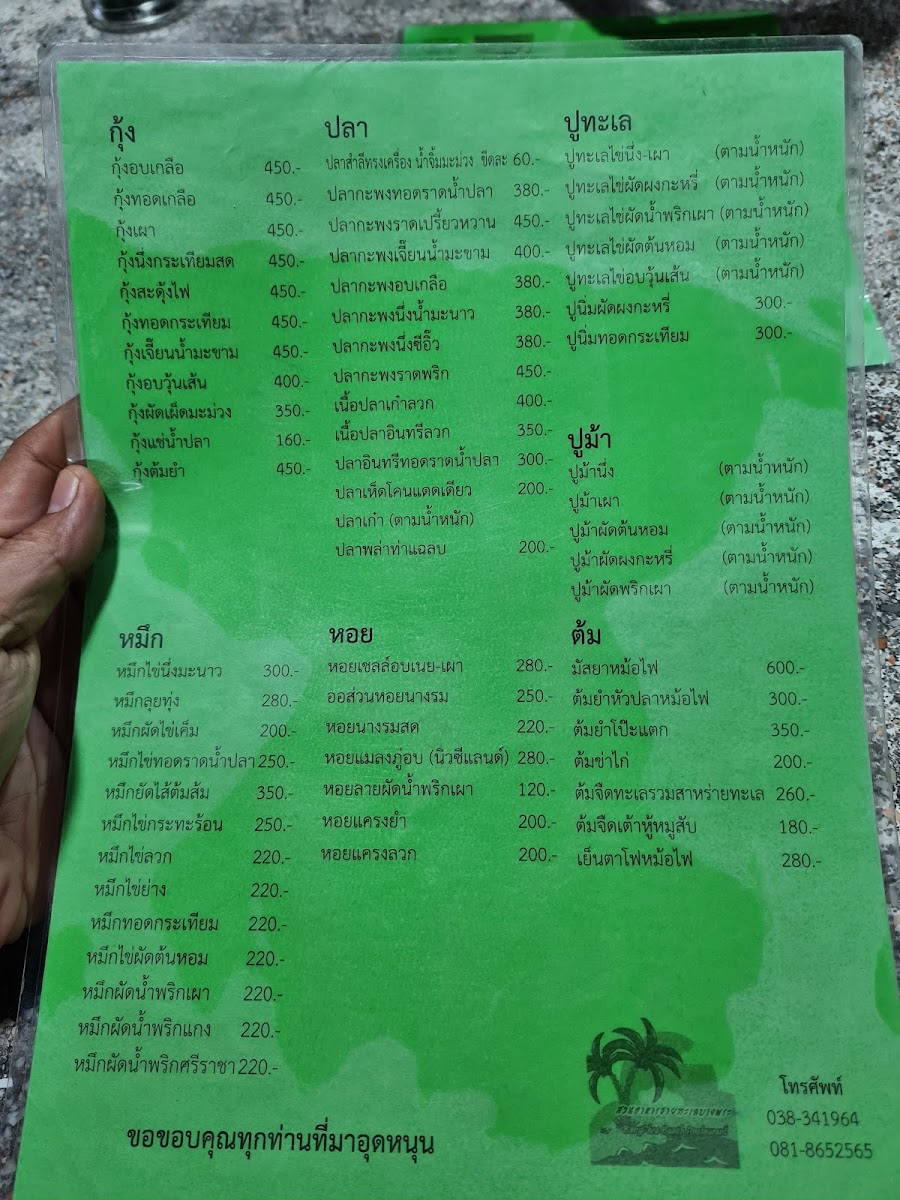 กุ้ง
กุ้งอบเกลือ 450.-
กุ้งทอดเกลือ 450.-
กุ้งเผา 450.-
กุ้งนึ่งกระเทียมสด 450.-
กุ้งสะดุ้งไฟ 450.-
กุ้งทอดกระเทียม 450.-
กุ้งเจี๊ยนน้ำมะขาม 450.-
กุ้งอบวุ้นเส้น 400.-
กุ้งผัดเผ็ดมะม่วง 350.-
กุ้งแช่น้ำปลา 160.-
กุ้งต้มยำ 450.-
ปลา
ปลาสำลีทรงเครื่อง น้ำจิ้มมะม่วง ขีดละ 60.-
ปลากะพงทอดราดน้ำปลา 380.-
ปลากะพงราดเปรี้ยวหวาน 450.-
ปลากะพงเจี๊ยนน้ำมะขาม 400.-
ปลากะพงอบเกลือ 380.-
ปลากะพงนึ่งน้ำมะนาว 380.-
ปลากะพงนึ่งซีอิ๊ว 380.-
ปลากะพงราดพริก 450.-
เนื้อปลาเก๋าลวก 400.-
เนื้อปลาอินทรีลวก 350.-
ปลาอินทรีทอดราดน้ำปลา 300.-
ปลาเห็ดโคนแดดเดียว 200.-
ปลาเก๋า (ตามน้ำหนัก)
ปลาพล่าท่าแฉลบ 200.-
ปูทะเล
ปูทะเลไข่นึ่ง-เผา (ตามน้ำหนัก)
ปูทะเลไข่ผัดผงกะหรี่ (ตามน้ำหนัก)
ปูทะเลไข่ผัดน้ำพริกเผา (ตามน้ำหนัก)
ปูทะเลไข่ผัดต้นหอม (ตามน้ำหนัก)
ปูทะเลไข่อบวุ้นเส้น (ตามน้ำหนัก)
ปูนิ่มผัดผงกะหรี่ 300.-
ปูนิ่มทอดกระเทียม 300.-
ปูม้า
ปูม้านึ่ง (ตามน้ำหนัก)
ปูม้าเผา (ตามน้ำหนัก)
ปูม้าผัดต้นหอม (ตามน้ำหนัก)
ปูม้าผัดผงกะหรี่ (ตามน้ำหนัก)
ปูม้าผัดพริกเผา (ตามน้ำหนัก)
หมึก
หมึกไข่นึ่งมะนาว 300.-
หมึกลุยทุ่ง 280.-
หมึกผัดไข่เค็ม 200.-
หมึกไข่ทอดราดน้ำปลา 250.-
หมึกยัดไส้ต้มส้ม 350.-
หมึกไข่กระทะร้อน 250.-
หมึกไข่ลวก 220.-
หมึกไข่ย่าง 220.-
หมึกทอดกระเทียม 220.-
หมึกไข่ผัดต้นหอม 220.-
หมึกผัดน้ำพริกเผา 220.-
หมึกผัดน้ำพริกแกง 220.-
หมึกผัดน้ำพริกศรีราชา 220.-
หอย
หอยเชลล์อบเนย-เผา 280.-
ออส่วนหอยนางรม 250.-
หอยนางรมสด 220.-
หอยแมลงภู่อบ (นิวซีแลนด์) 280.-
หอยลายผัดน้ำพริกเผา 120.-
หอยแครงยำ 200.-
หอยแครงลวก 200.-
ต้ม
มัสยาหม้อไฟ 600.-
ต้มยำหัวปลาหม้อไฟ 300.-
ต้มยำโป๊ะแตก 350.-
ต้มข่าไก่ 200.-
ต้มจืดทะเลรวมสาหร่ายทะเล 260.-
ต้มจืดเต้าหู้หมูสับ 180.-
เย็นตาโฟหม้อไฟ 280.-
ขอขอบคุณทุกท่านที่มาอุดหนุน
โทรศัพท์
038-341964
081-8652565